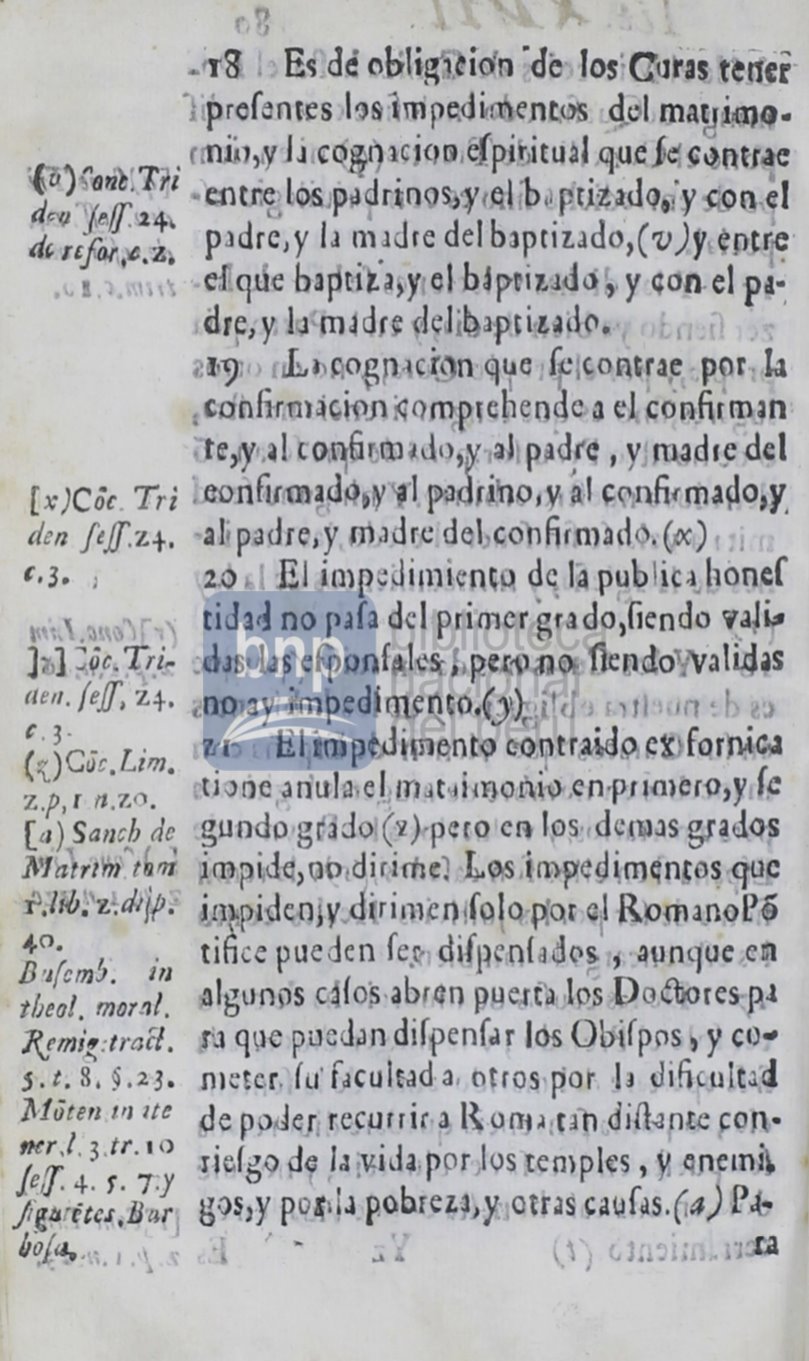 18 Es de obligacion de los Curas tener
presentes los impedimentos del matrimo-
nio, y la cognacion espiritual que se contrae
entre los padrinos, y el baptizado, y con el
padre, y la madre del baptizado, (v) y entre
el que baptiza, y el baptizado, y con el pa-
dre, y la madre del baptizado.
19 La cognacion que se contrae por la
confirmacion comprehende a el confirman
te, y al confirmado, y al padre, y madre del
confirmado, y al padrino, y al confirmado, y
al padre, y madre del confirmado. (x)
20 El impedimiento de la publica hones
tidad no pasa del primer grado, siendo vali-
das las esponsales, pero no siendo validas
no ay impedimento. (y)
21 El impedimento contraido ex fornica
tione anula el matrimonio en primero, y se
gundo grado (z) pero en los demas grados
impide, no dirime. Los impedimentos que
impiden, y dirimen solo por el Romano Põ
tifice pueden ser dispensados, aunque en
algunos casos abren puerta los Doctores pa
ra que puedan dispensar los Obispos, y co-
meter su facultad a otros por la dificultad
de poder recurrir a Roma tan distante con
riesgo de la vida por los temples, y enemi
gos, y por la pobreza, y otras causas. (a) Pa-
ra
(v) Conc. Tri
den sess. 24.
de refor. c. 2.
[x) Côc. Tri
den sess. 24.
c. 3.
]y] Côc. Tri-
den. sess. 24.
c. 3.
(z) Côc. Lim.
2. p, 1 n. 20.
[a) Sanch de
Matrim tom
1. lib. 2. disp.
40.
Busemb. in
theol. moral.
Remig. tract.
5. t. 8. §. 23.
Môten in ite
ner. l. 3. tr. 10
sess. 4. 5. 7. y
siguiêtes. Bar
bosa.
bnp biblioteca
nacional
del perú